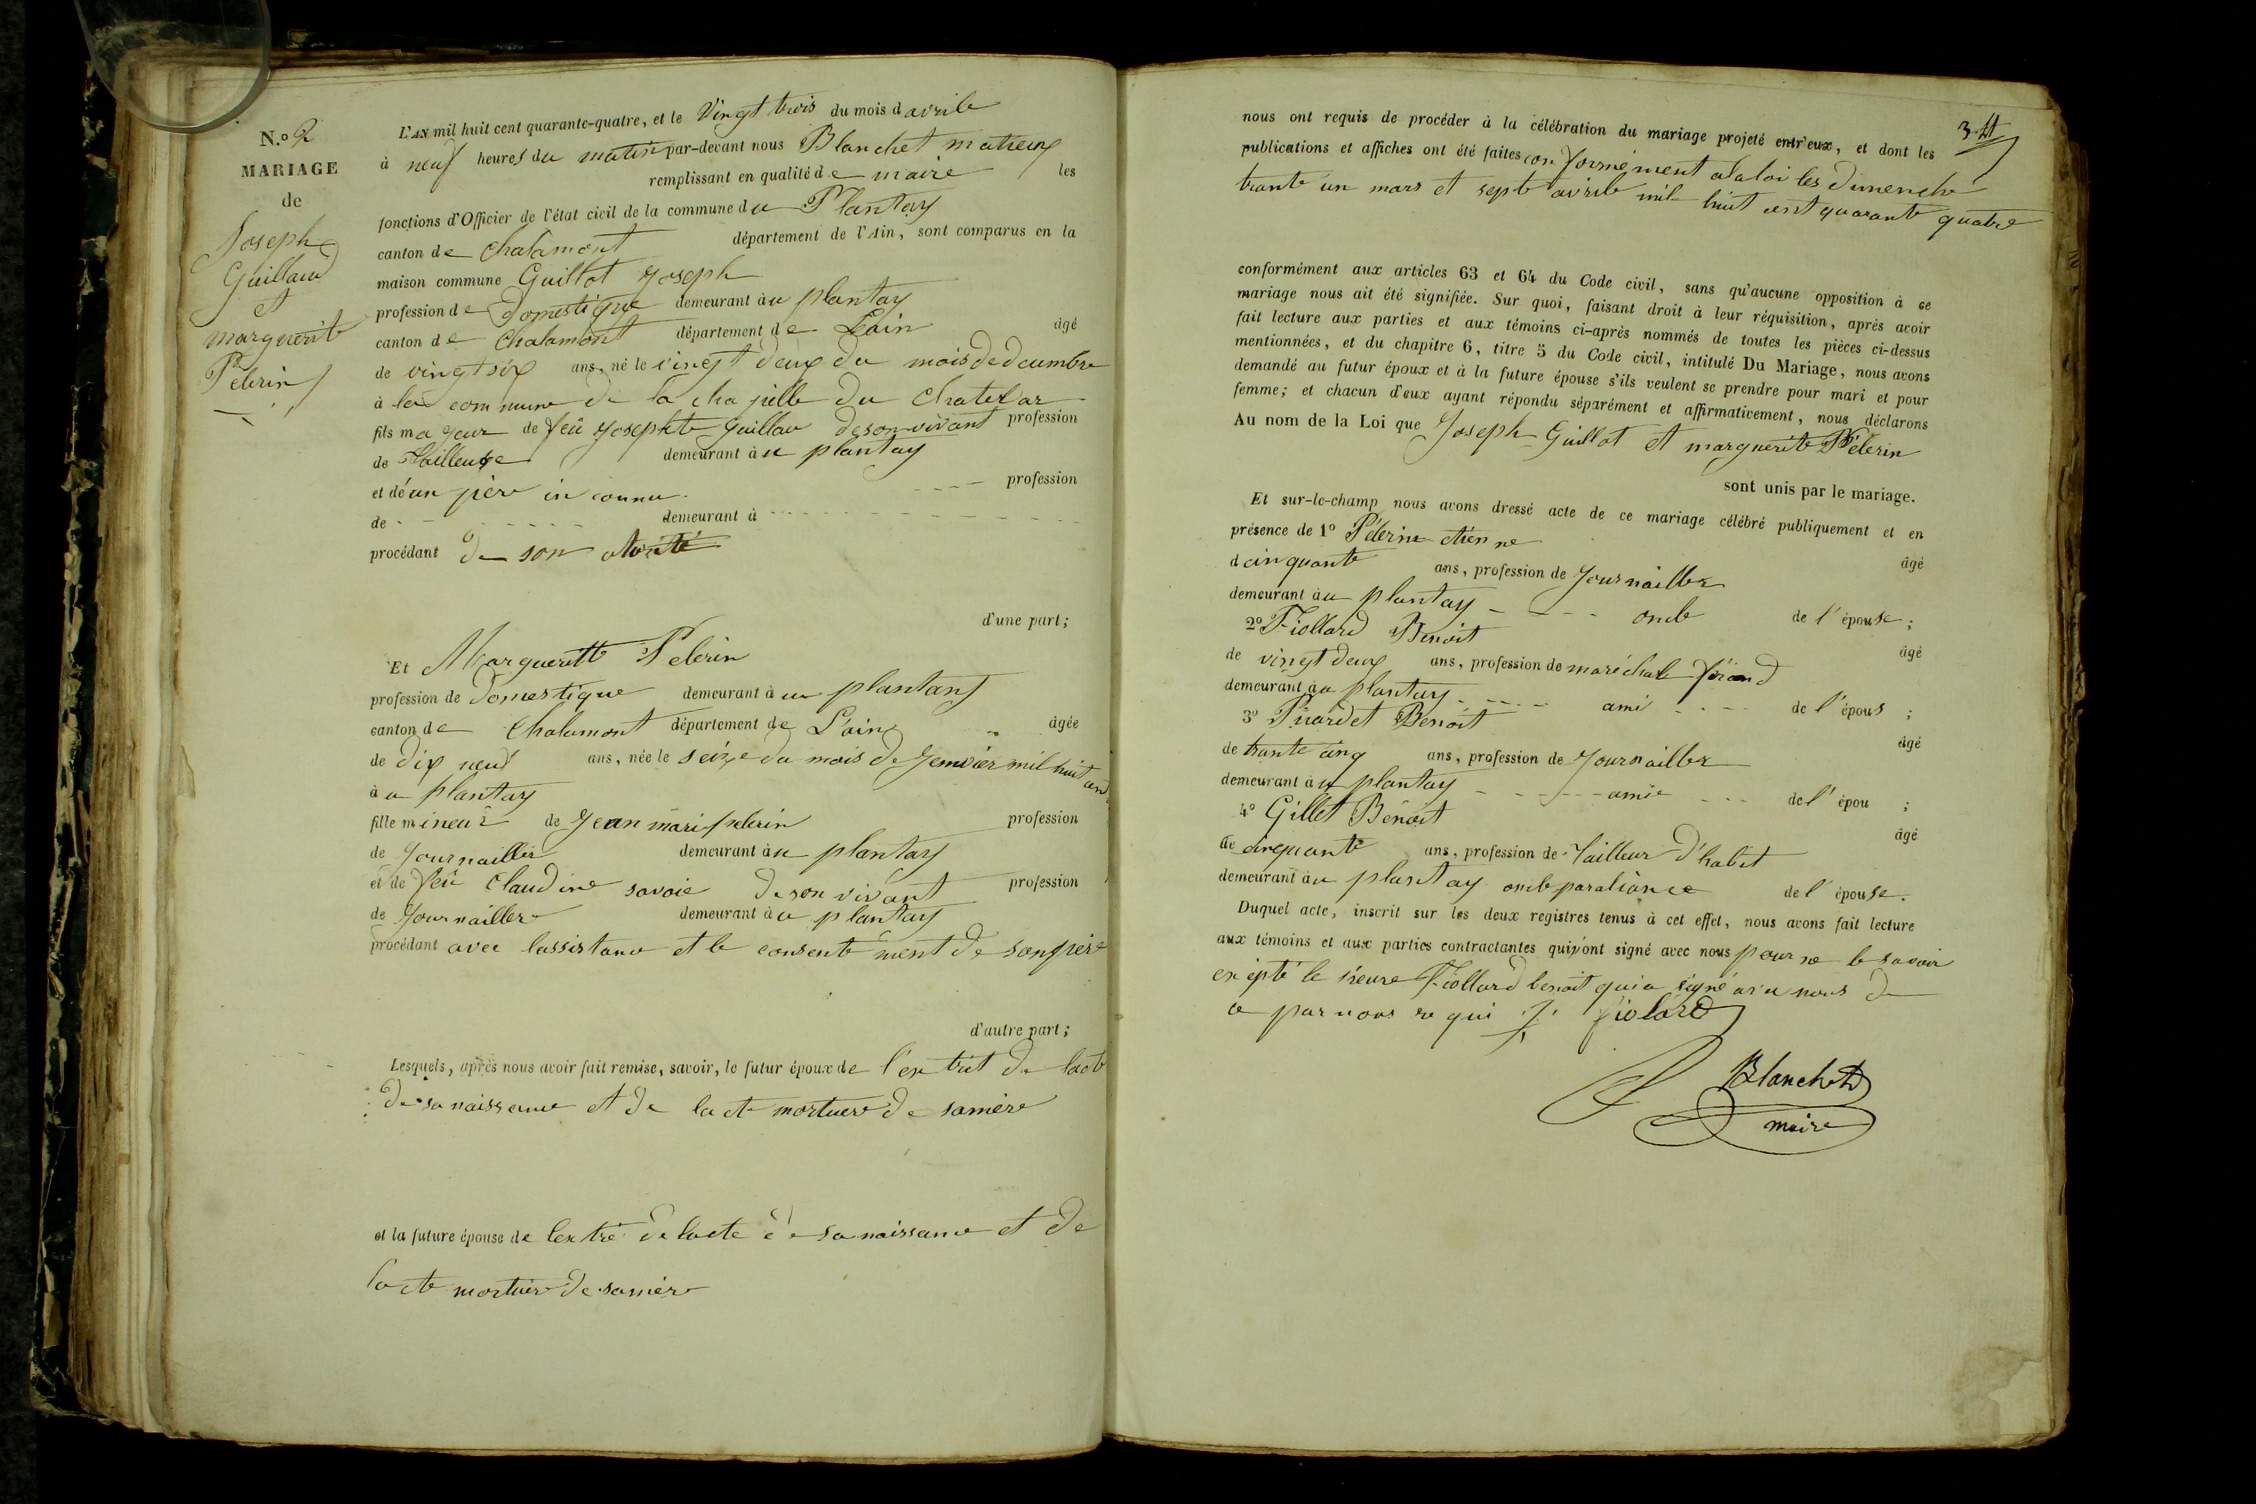 N.o 2
MARIAGE
de
Joseph
Guillaud
et
marguerite
Pelerin
L'AN mil huit cent quarante-quatre, et le Vingt trois du mois d avrile
à neuf heures du matin par-devant nous Blanchet matieux
remplissant en qualité de maire les
fonctions d'Officier de l'état civil de la commune du Plantay
canton de chalamont département de l'Ain, sont comparus en la
maison commune Guillot Joseph
profession de Domestique demeurant au plantay
canton de chalamont département de Lain âgé
de vingt six ans, né le vingt deux du mois de decembre
à la commune de la chapelle du Chatelar
fils majeur de feû Josephte Guillau de son vivant profession
de Tailleuse demeurant au plantay
et d'é un père in connu profession
de demeurant à
procédant de son
d'une part;
Et Margueritte Pelerin
profession de Domestique demeurant à au plantay
canton de Chalamont département de L'ain âgée
de dix neuf ans, née le seize du mois de Jenvier mil huit cent
à u plantay
fille mineur de Jean mari pelerin profession
de Journaillier demeurant au plantay
et de feû Claudine savoie de son vivant profession
de Journailler demeurant au plantay
procédant avec lassistance et le consentement de son père
d'autre part;
Lesquels, après nous avoir fait remise, savoir, le futur époux de l'extrit de lacte
de sa naissance et de lacte mortuere de samère
et la future épouse de lextré de lacte de sa naissance et de
lacte mortuère de samère
3 4
nous ont requis de procéder à la célébration du mariage projeté entr'eux, et dont les
publications et affiches ont été faites conformément alaloi les dimenche
trante un mars et sept avrile mil huit cent quarante quatre
conformément aux articles 63 et 64 du Code civil, sans qu'aucune opposition à ce
mariage nous ait été signifiée. Sur quoi, faisant droit à leur réquisition, après avoir
fait lecture aux parties et aux témoins ci-après nommés de toutes les pièces ci-dessus
mentionnées, et du chapitre 6, titre 5 du Code civil, intitulé Du Mariage, nous avons
demandé au futur époux et à la future épouse s'ils veulent se prendre pour mari et pour
femme; et chacun d'eux ayant répondu séparément et affirmativement, nous déclarons
Au nom de la Loi que Joseph Guillot et marguerite Pélerin
sont unis par le mariage.
Et sur-le-champ nous avons dressé acte de ce mariage célébré publiquement et en
présence de 1o Pélerin etienne âgé
d cinquante ans, profession de Journailler
demeurant au plantay oncle de l'épouse;
2o Fiollard Benoit âgé
de vingt deux ans, profession de maréchale férand
demeurant au plantay ami de l'épous;
3o Benoit âgé
de trante cinq ans, profession de Journailler
demeurant au plantay amie de l'épou;
4o Gillet Bénoit âgé
de cinquante ans, profession de Tailleur d'habit
demeurant au plantay oncle paraliance de l'épouse.
Duquel acte, inscrit sur les deux registres tenus à cet effet, nous avons fait lecture
aux témoins et aux parties contractantes qui n'ont signé avec nous pour ne le savoir
exépté le sieure Fiollard benoit qui a signé avec nous de
ce par nous requi fiolard
Blanchet
maire